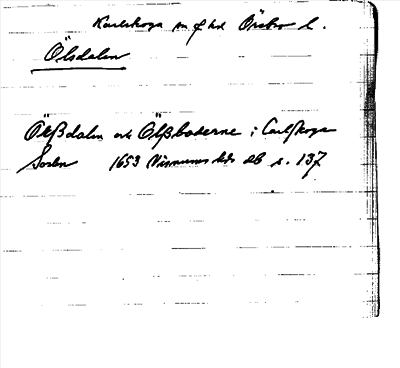 Karlskoga sn o hd Örebro l.
Ölsdalen
Ölßdalen och Ölßboderne i Carlskoga
Socken 1653 Visnums hds db s. 137